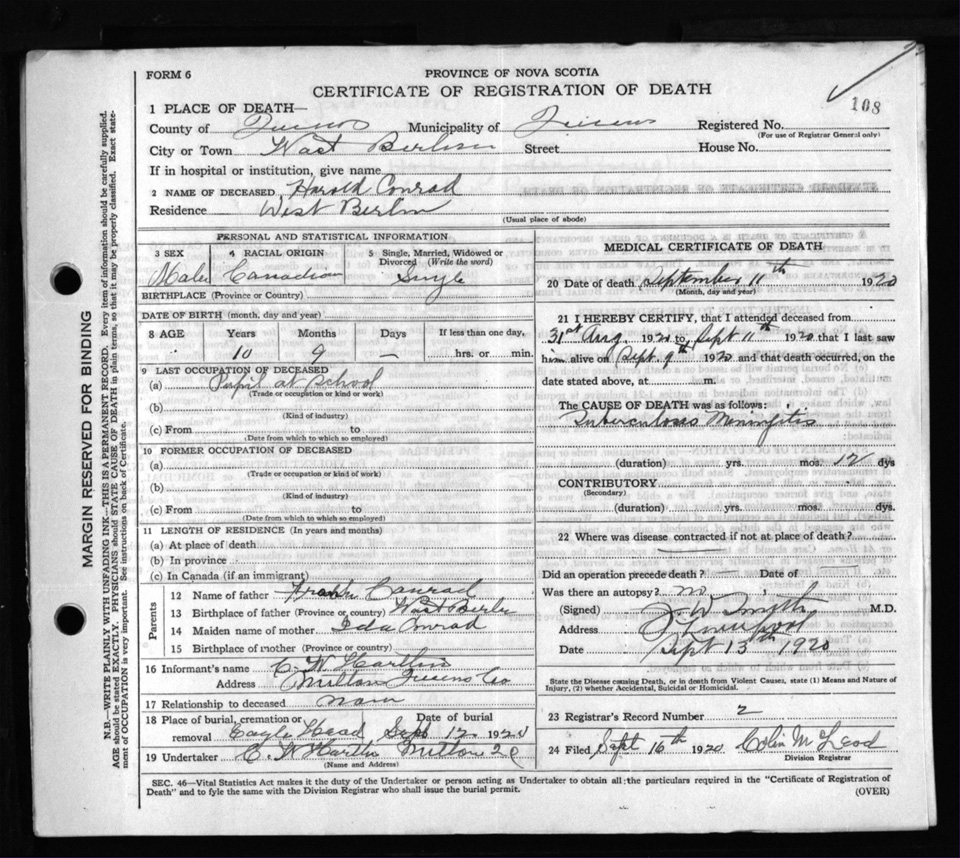 108
FORM 6
PROVINCE OF NOVA SCOTIA
CERTIFICATE OF REGISTRATION OF DEATH
1 PLACE OF DEATH—
County of Queens Municipality of Queens Registered No.
(For use of Registrar General only)
City or Town West Berlin Street House No.
If in hospital or institution, give name
2 NAME OF DECEASED Harold Conrad
Residence West Berlin
(Usual place of abode)
PERSONAL AND STATISTICAL INFORMATION
3 SEX 4 RACIAL ORIGIN 5 Single, Married, Widowed or Divorced (Write the word)
Male Canadian Single
BIRTHPLACE (Province or Country)
DATE OF BIRTH (month, day and year)
8 AGE Years Months Days If less than one day,
10 9 — hrs. or min.
9 LAST OCCUPATION OF DECEASED
(a) Pupil at School
(Trade or occupation or kind or work)
(b)
(Kind of industry)
(c) From to
(Date from which to which so employed)
10 FORMER OCCUPATION OF DECEASED
(a)
(Trade or occupation or kind of work)
(b)
(Kind of industry)
(c) From to
(Date from which to which so employed)
11 LENGTH OF RESIDENCE (In years and months)
(a) At place of death
(b) In province
(c) In Canada (if an immigrant)
Parents
12 Name of father Frank Conrad
13 Birthplace of father (Province or country) West Berlin
14 Maiden name of mother Ida Conrad
15 Birthplace of mother (Province or country)
16 Informant's name C. W Harlin
Address Milton Queens Co
17 Relationship to deceased none
18 Place of burial, cremation or removal Eagle Head Date of burial Sept 12 192
19 Undertaker Milton
(Name and Address)
MEDICAL CERTIFICATE OF DEATH
20 Date of death September 11th 1920
(Month, day and year)
21 I HEREBY CERTIFY, that I attended deceased from
31st Aug. 1920 to Sept 11th 1920 that I last saw
him alive on Sept. 9th 1920 and that death occurred, on the
date stated above, at m.
The CAUSE OF DEATH was as follows:
Tuberculosis Meningitis
(duration) yrs. mos. 12 dys
CONTRIBUTORY
(Secondary)
(duration) yrs. mos. dys.
22 Where was disease contracted if not at place of death?
Did an operation precede death? Date of
Was there an autopsy? no
(Signed) J. W Smyth M.D.
Address Liverpool
Date Sept 13th 1920
State the Disease causing Death, or in death from Violent Causes, state (1) Means and Nature of
Injury, (2) whether Accidental, Suicidal or Homicidal.
23 Registrar's Record Number 2
24 Filed Sept 16th 1920 Colin McLeod
Division Registrar
SEC. 46—Vital Statistics Act makes it the duty of the Undertaker or person acting as Undertaker to obtain all the particulars required in the "Certificate of Registration of
Death" and to fyle the same with the Division Registrar who shall issue the burial permit.
(OVER)
MARGIN RESERVED FOR BINDING
N.B.—WRITE PLAINLY WITH UNFADING INK—THIS IS A PERMANENT RECORD. Every item of information should be carefully supplied.
AGE should be stated EXACTLY. PHYSICIANS should STATE CAUSE OF DEATH in plain terms, so that it may be properly classified. Exact statement
of OCCUPATION is very important. See instructions on back of Certificate.